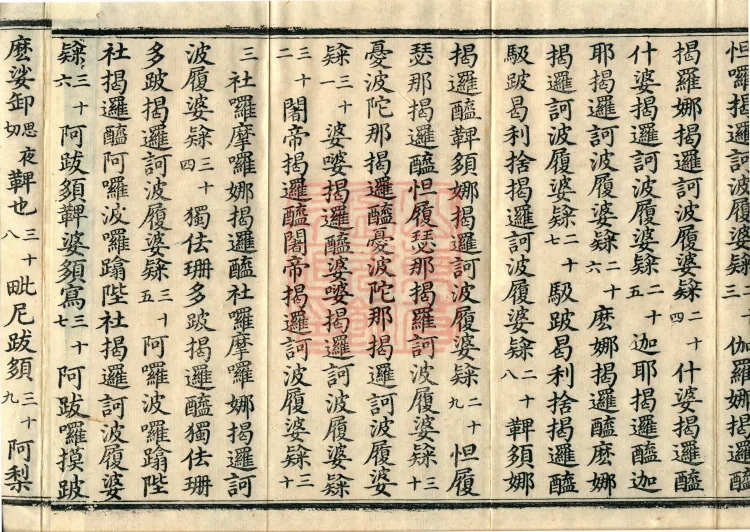 怛囉揭邏訶波履婆㱔二十三伽羅娜揭邏醯
揭羅娜揭邏訶波履婆㱔二十四什婆揭邏醯
什婆揭邏訶波履婆㱔二十五迦耶揭邏醯迦
耶揭邏訶波履婆㱔二十六麽娜揭邏醯麽娜
揭邏訶波履婆㱔二十七馺跛曷利捨揭邏醯
馺跛曷利捨揭邏訶波履婆㱔二十八鞞須娜
揭邏醯鞞須娜揭邏訶波履婆㱔二十九怛履
瑟那揭邏醯怛履瑟那揭羅訶波履婆㱔三十
憂波陀那揭邏醯憂波陀那揭邏訶波履婆
㱔三十一婆嘙揭邏醯婆嘙揭邏訶波履婆㱔
三十二闍帝揭邏醯闍帝揭邏訶波履婆㱔三十
三社囉摩囉娜揭邏醯社囉摩囉娜揭邏訶
波履婆㱔三十四獨佉珊多跛揭邏醯獨佉珊
多跛揭邏訶波履婆㱔三十五阿囉波囉蹹陛
社揭邏醯阿囉波囉蹹陛社揭邏訶波履婆
㱔三十六阿跋須鞞婆須寫三十七阿跋囉摸跛
麽娑卸思夜切鞞也三十八毗尼跋須三十九阿梨